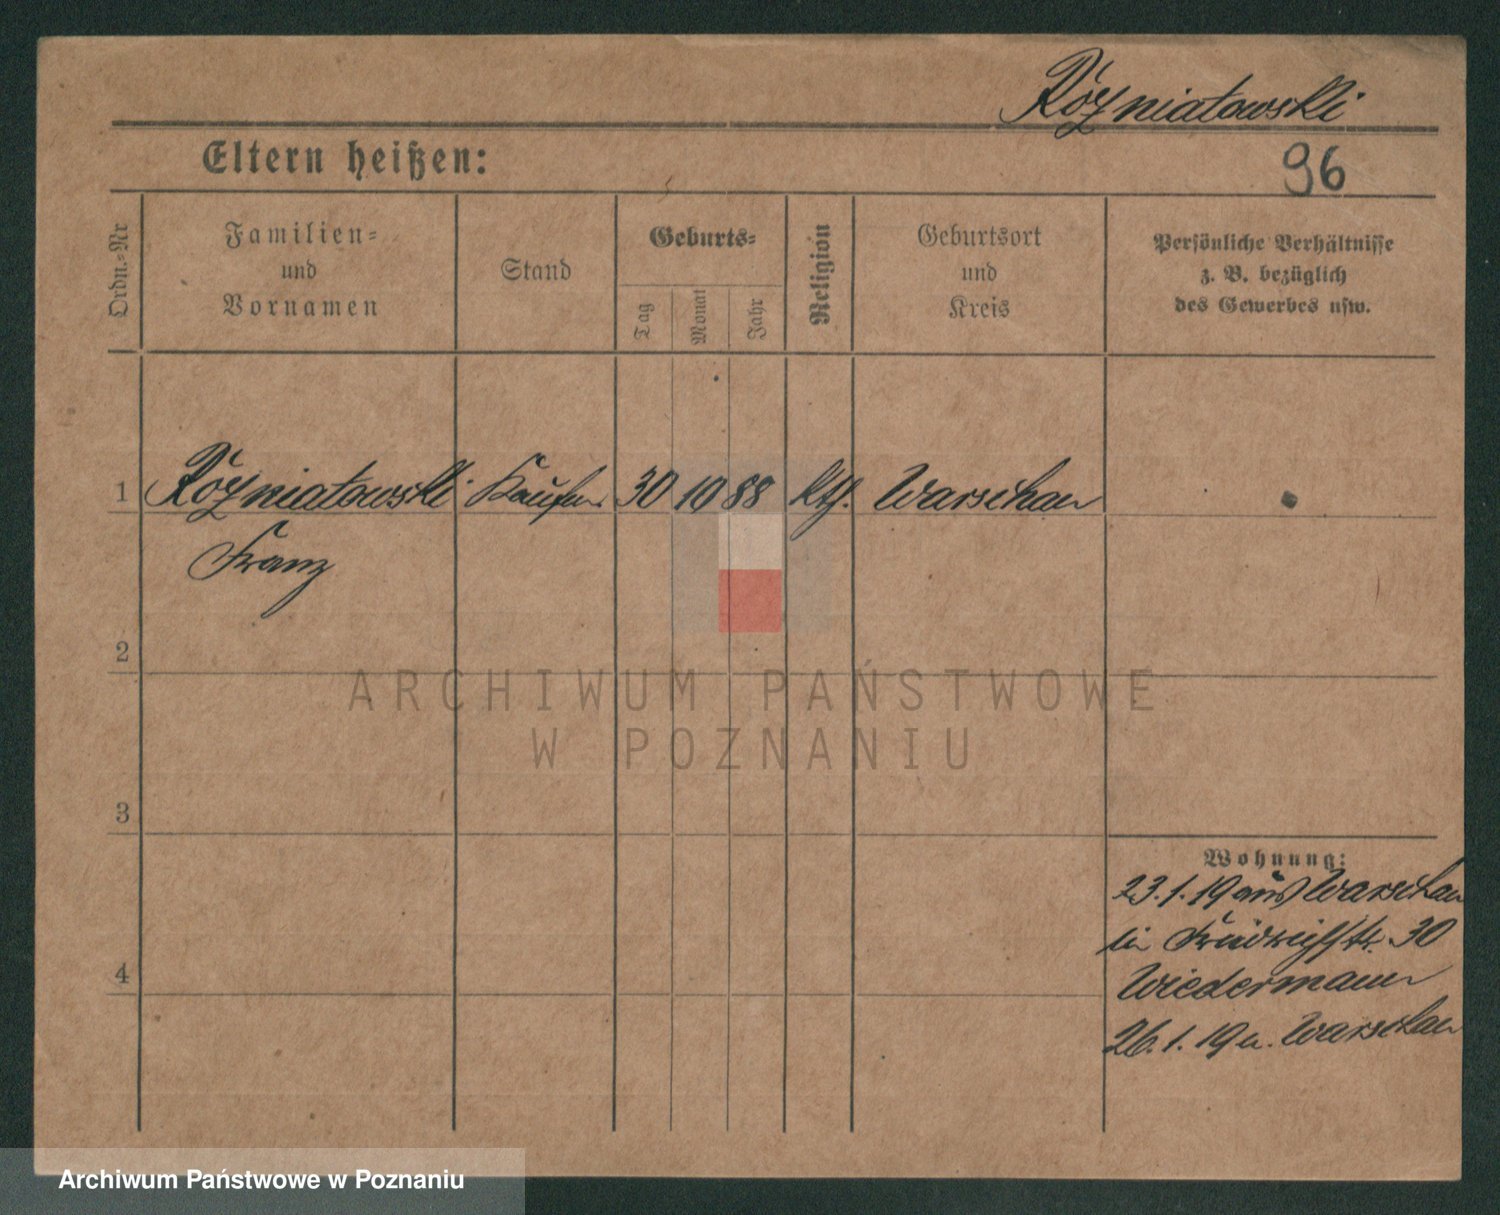 Różniatowski
96
Eltern heißen:
Ordn.-Nr
Familien-
und
Vornamen
Stand
Geburts-
Tag
Monat
Jahr
Religion
Geburtsort
und
Kreis
Persönliche Verhältnisse
z. B. bezüglich
des Gewerbes usw.
1 Różniatowski Kaufm. 30 10 88 kth. Warschau
Franz
2
3
4
Wohnung:
23.1.19 aus Warschau
in Friedrichstr. 30
Wiedermann
26.1.19 n. Warschau
ARCHIWUM PAŃSTWOWE
W POZNANIU
Archiwum Państwowe w Poznaniu